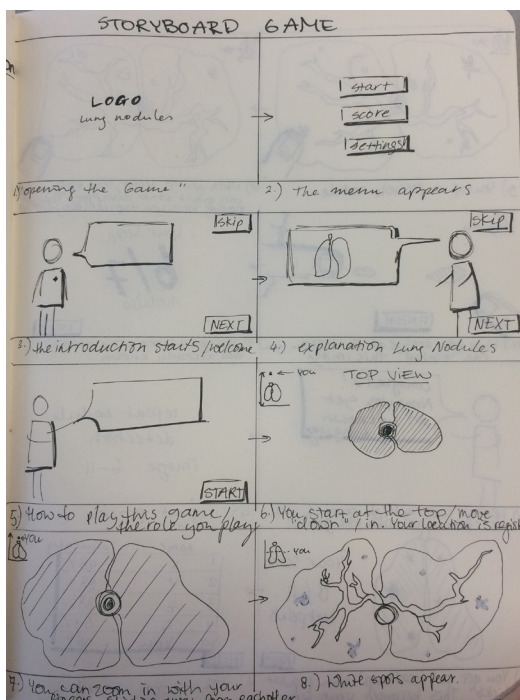 STORYBOARD GAME
LOGO
lung nodules
start
score
settings
1) opening the Game "
2.) The menu appears
Skip
NEXT
3.) the introduction starts/welcome
Skip
NEXT
4.) explanation Lung Nodules
START
5) How to play this game/
the role you play
YOU
TOP VIEW
6) You start at the top/move
"down"/in. Your location is regis
YOU
7.) You can zoom in with your
YOU
8.) White spots appear.